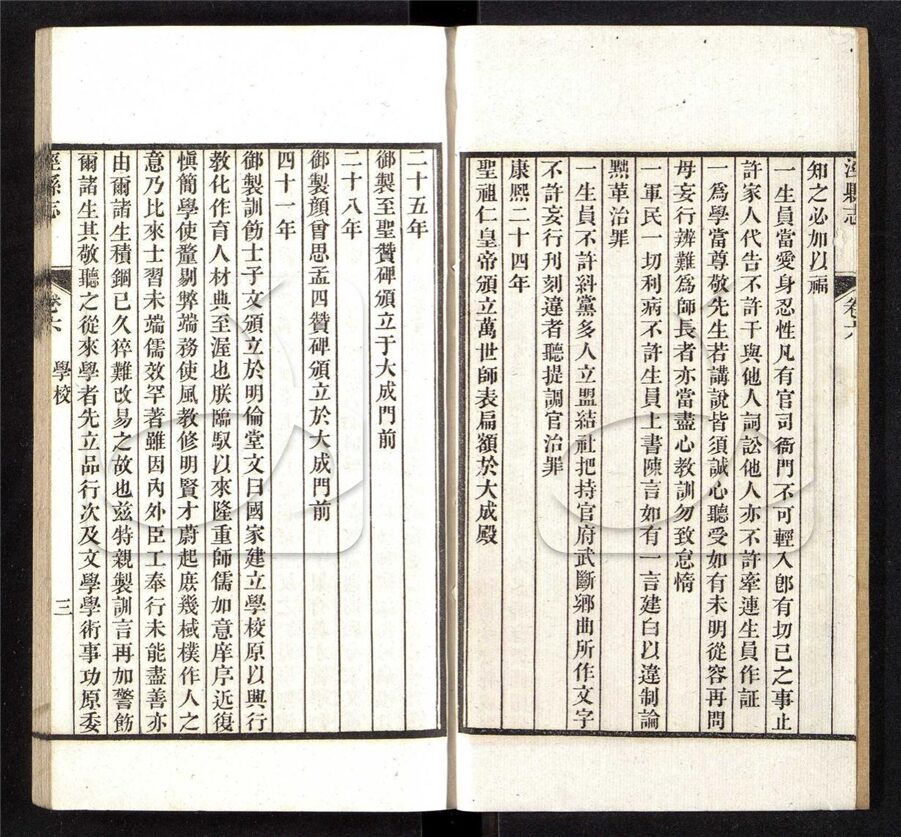 涇縣志
卷六
知之必加以禍
一生員當愛身忍性凡有官司衙門不可輕入卽有切己之事止
許家人代告不許干與他人詞訟他人亦不許牽連生員作証
一爲學當尊敬先生若講說皆須誠心聽受如有未明從容再問
毋妄行辨難爲師長者亦當盡心教訓勿致怠惰
一軍民一切利病不許生員上書陳言如有一言建白以違制論
黜革治罪
一生員不許糾黨多人立盟結社把持官府武斷鄉曲所作文字
不許妄行刊刻違者聽提調官治罪
康熙二十四年
聖祖仁皇帝頒立萬世師表扁額於大成殿
二十五年
御製至聖贊碑頒立于大成門前
二十八年
御製顏曾思孟四贊碑頒立於大成門前
四十一年
御製訓飭士子文頒立於明倫堂文曰國家建立學校原以興行
教化作育人材典至渥也朕臨馭以來隆重師儒加意庠序近復
愼簡學使釐剔弊端務使風教修明賢才蔚起庶幾棫樸作人之
意乃比來士習未端儒效罕著雖因內外臣工奉行未能盡善亦
由爾諸生積錮已久猝難改易之故也兹特親製訓言再加警飭
爾諸生其敬聽之從來學者先立品行次及文學學術事功原委
涇縣志
卷六
學校
三